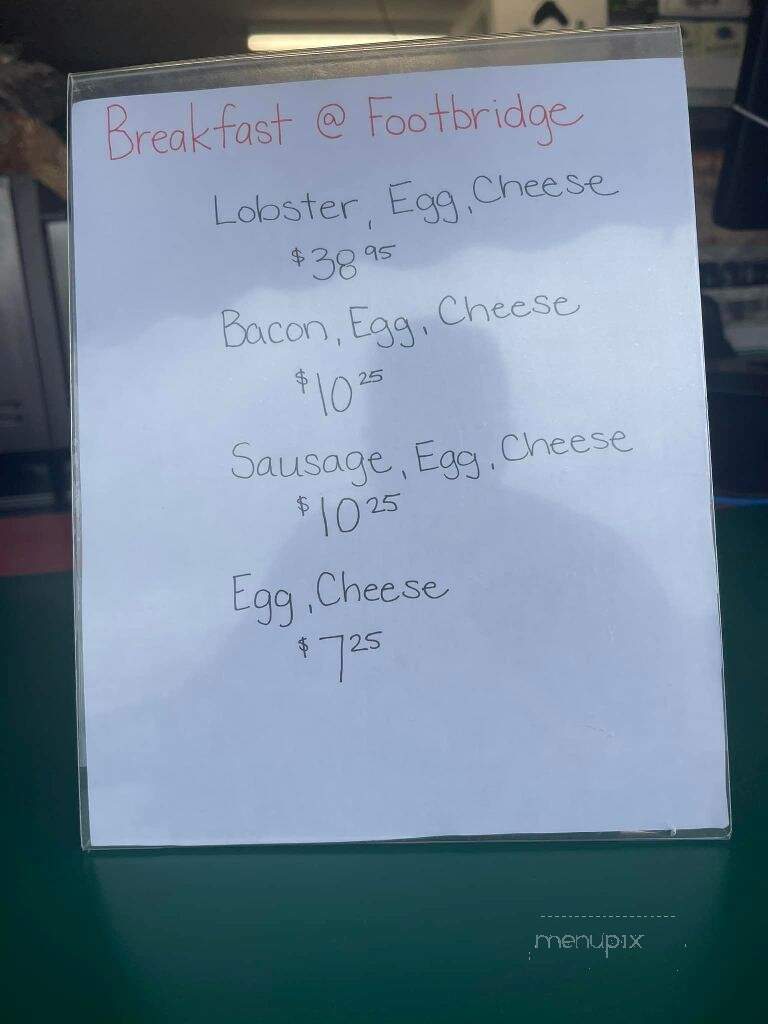 Breakfast @ Footbridge
Lobster, Egg, Cheese
$38 95
Bacon, Egg, Cheese
$10 25
Sausage, Egg, Cheese
$10 25
Egg, Cheese
$7 25
menupix